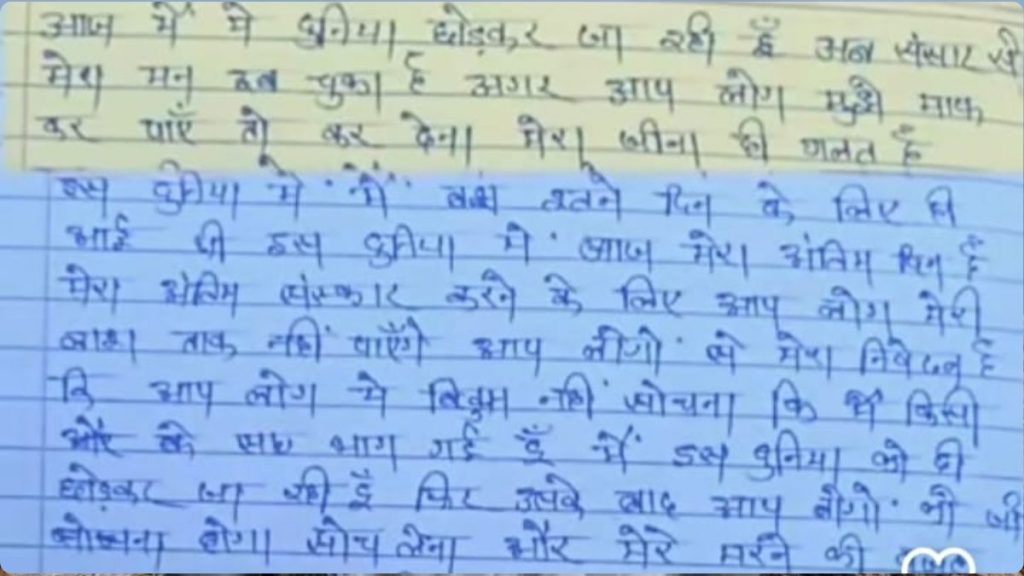 आज में मे दुनिया छोड़कर जा रही हूँ अब संसार से
मेरा मन उब चुका है अगर आप लोग मुझे माफ
कर पाएँ तो कर देना मेरा जीना ही गलत है
इस दुनिया मे मैं बस इतने दिन के लिए ही
आई थी इस दुनिया मे आज मेरा अंतिम दिन है
मेरा अंतिम संस्कार करने के लिए आप लोग मेरी
लाश ताक नहीं पाएँगे आप लोगो से मेरा निवेदन है
कि आप लोग ये बिल्कुल नहीं सोचना कि मैं किसी
और के साथ भाग गई हूँ मैं इस दुनिया को ही
छोड़कर जा रही हूँ फिर उसके बाद आप लोगो को जो
सोचना होगा सोच लेना और मेरे मरने की